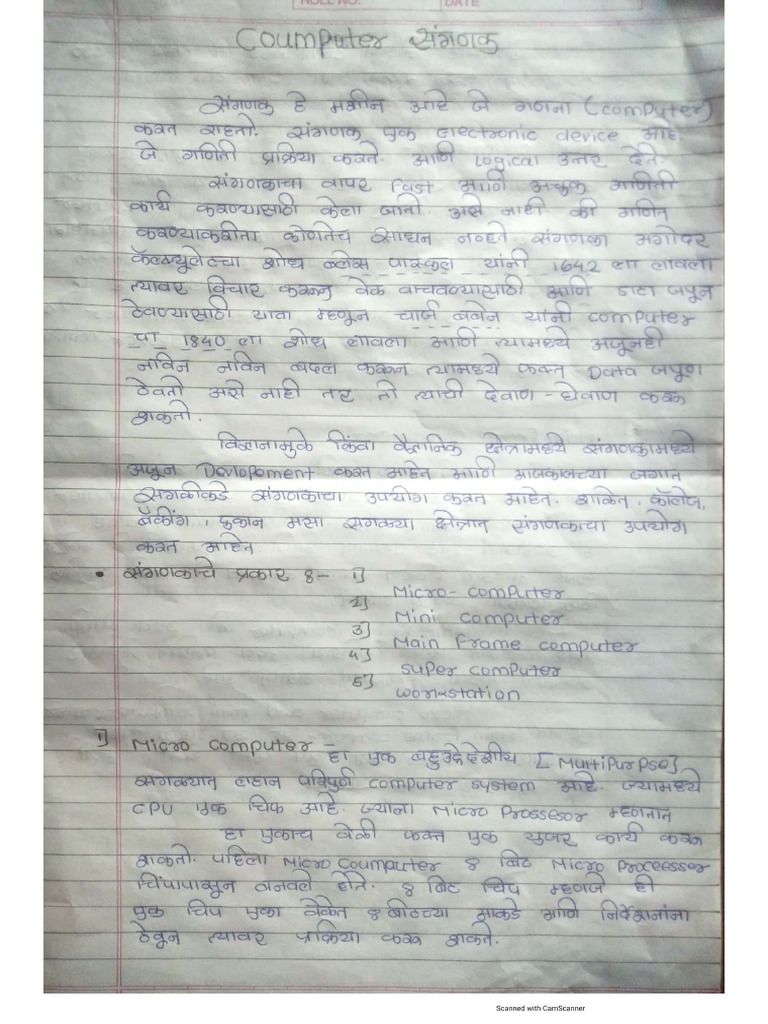 ROLL NO. DATE
Coumputer संगणक
संगणक हे मशीन आहे जे गणना (computer)
करत राहतो. संगणक एक electronic device आहे.
जे गणिती प्रक्रिया करते. आणि Logical उत्तर देते.
संगणकाचा वापर Fast आणि अचुक गणिती
कार्य करण्यासाठी केला जातो. असे नाही की गणित
करण्याकरीता कोणतेच साधन नव्हते. संगणका अगोदर
कॅल्क्युलेटरचा शोध ब्लेस पास्कल यांनी 1642 ला लावला
त्यावर विचार करून वेळ वाचवण्यासाठी आणि डाटा जपून
ठेवण्यासाठी यावा म्हणून चार्ज बबेन यांनी computer
चा 1840 ला शोध लावला आणि त्यामध्ये अजूनही
नविन नविन बदल करून त्यामध्ये फक्त Data जपूण
ठेवतो असे नाही तर तो त्याची देवाण - घेवाण करू
शकतो.
विज्ञानामुळे किंवा वैज्ञानिक क्षेत्रामध्ये संगणकामध्ये
अजून Devlopoment करत आहेत आणि आजकालच्या जगात
सगळीकडे संगणकाचा उपयोग करत आहेत. शाळेत, कॉलेज,
बँकींग, दुकान अशा सगळ्या क्षेत्रात संगणकाचा उपयोग
करत आहेत
• संगणकाचे प्रकार :- 1]
Micro - computer
2] Mini computer
3] Main Frame computer
4] super computer
5] workstation
1] Micro computer - हा एक बहुउद्देशीय [MultiPurPse]
सगळ्यात लहान परिपुर्ण computer system आहे. ज्यामध्ये
CPU एक चिफ आहे. ज्याला Micro Prossesor म्हणतात
हा एकाच वेळी फक्त एक युजर कार्य करू
शकतो. पहिला Micro Coumputer 8 बिट Micro Proceessor
चिंपापासून बनवले होते. 8 बिट चिप म्हणजे ही
एक चिप एका वेळेत 8 बीटच्या आकडे आणि निर्देशांना
ठेवून त्यावर प्रक्रिया करू शकते.
Scanned with CamScanner